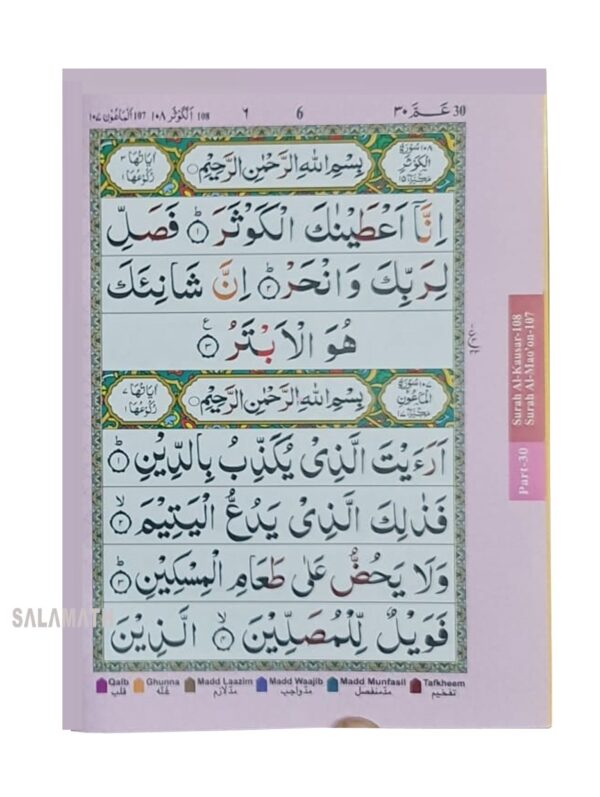 30 عَمَّ ٣٠ 6 ٦ 108 اَلْكَوْثَر ١٠٨ 107 اَلْمَاعُوْن ١٠٧
١٠٨ سُوْرَةُ الْكَوْثَرِ مَكِّيَّةٌ ١٥ بِسْمِ اللّٰهِ الرَّحْمٰنِ الرَّحِيْمِ ۝ اٰيَاتُهَا ٣ رُكُوْعُهَا ١
اِنَّاۤ اَعْطَيْنٰكَ الْكَوْثَرَ ؕ ۝١ فَصَلِّ
لِرَبِّكَ وَانْحَرْ ؕ ۝٢ اِنَّ شَانِئَكَ
هُوَ الْاَبْتَرُ ۝٣ ع
١٠٧ سُوْرَةُ الْمَاعُوْنِ مَكِّيَّةٌ ١٧ بِسْمِ اللّٰهِ الرَّحْمٰنِ الرَّحِيْمِ ۝ اٰيَاتُهَا ٧ رُكُوْعُهَا ١
اَرَءَيْتَ الَّذِىْ يُكَذِّبُ بِالدِّيْنِ ؕ ۝١
فَذٰلِكَ الَّذِىْ يَدُعُّ الْيَتِيْمَ ۙ ۝٢
وَلَا يَحُضُّ عَلٰى طَعَامِ الْمِسْكِيْنِ ؕ ۝٣
فَوَيْلٌ لِّلْمُصَلِّيْنَ ۙ ۝٤ الَّذِيْنَ
Qalb Ghunna Madd Laazim Madd Waajib Madd Munfasil Tafkheem
قلب غنّه مدّلازم مدّواجب مدّمنفصل تفخيم
Surah Al-Kausar-108
Surah Al-Mao'on-107
Part-30
SALAMATH